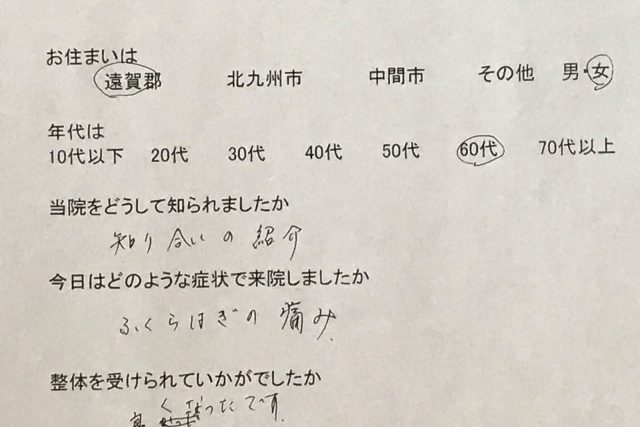 お住まいは
遠賀郡 北九州市 中間市 その他 男・女
年代は
10代以下 20代 30代 40代 50代 60代 70代以上
当院をどうして知られましたか
知り合いの紹介
今日はどのような症状で来院しましたか
ふくらはぎの痛み
整体を受けられていかがでしたか
なったです